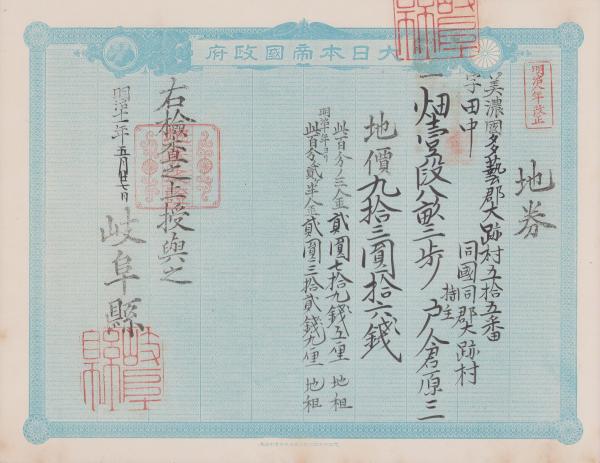 大日本帝國政府
明治八年改正
地券
美濃國多藝郡大跡村五拾五番
字田中
同國同郡大跡村
持主
一畑壹段八畝三歩ノ 戸倉原三
地價九拾三圓拾六錢
此百分ノ三人金貳圓七拾九錢五厘 地租
明治十年ヨリ
此百分ノ貳半人金貳圓三拾貳錢九厘 地租
右檢査之上授與之
明治十一年五月廿七日
岐阜縣
岐阜縣
岐阜縣